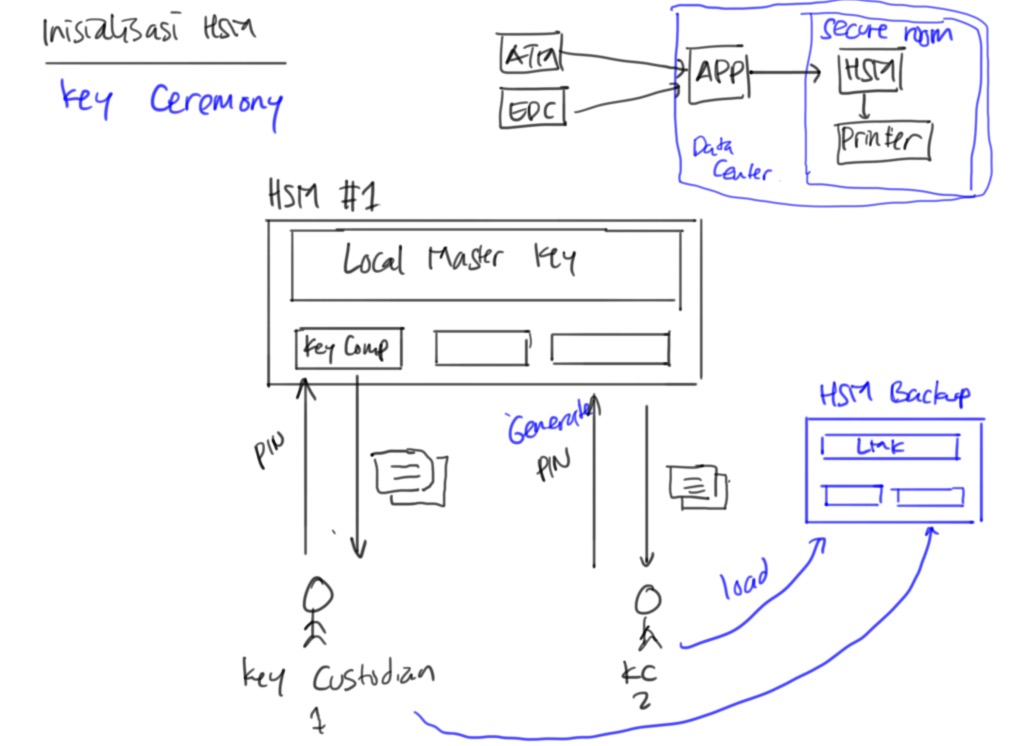 Inisialisasi HSM
Key Ceremony
ATM
EDC
APP
Data
Center
secure room
HSM
Printer
HSM #1
Local Master Key
Key Comp
PIN
Generate
PIN
HSM Backup
LMK
load
Key Custodian
1
KC
2